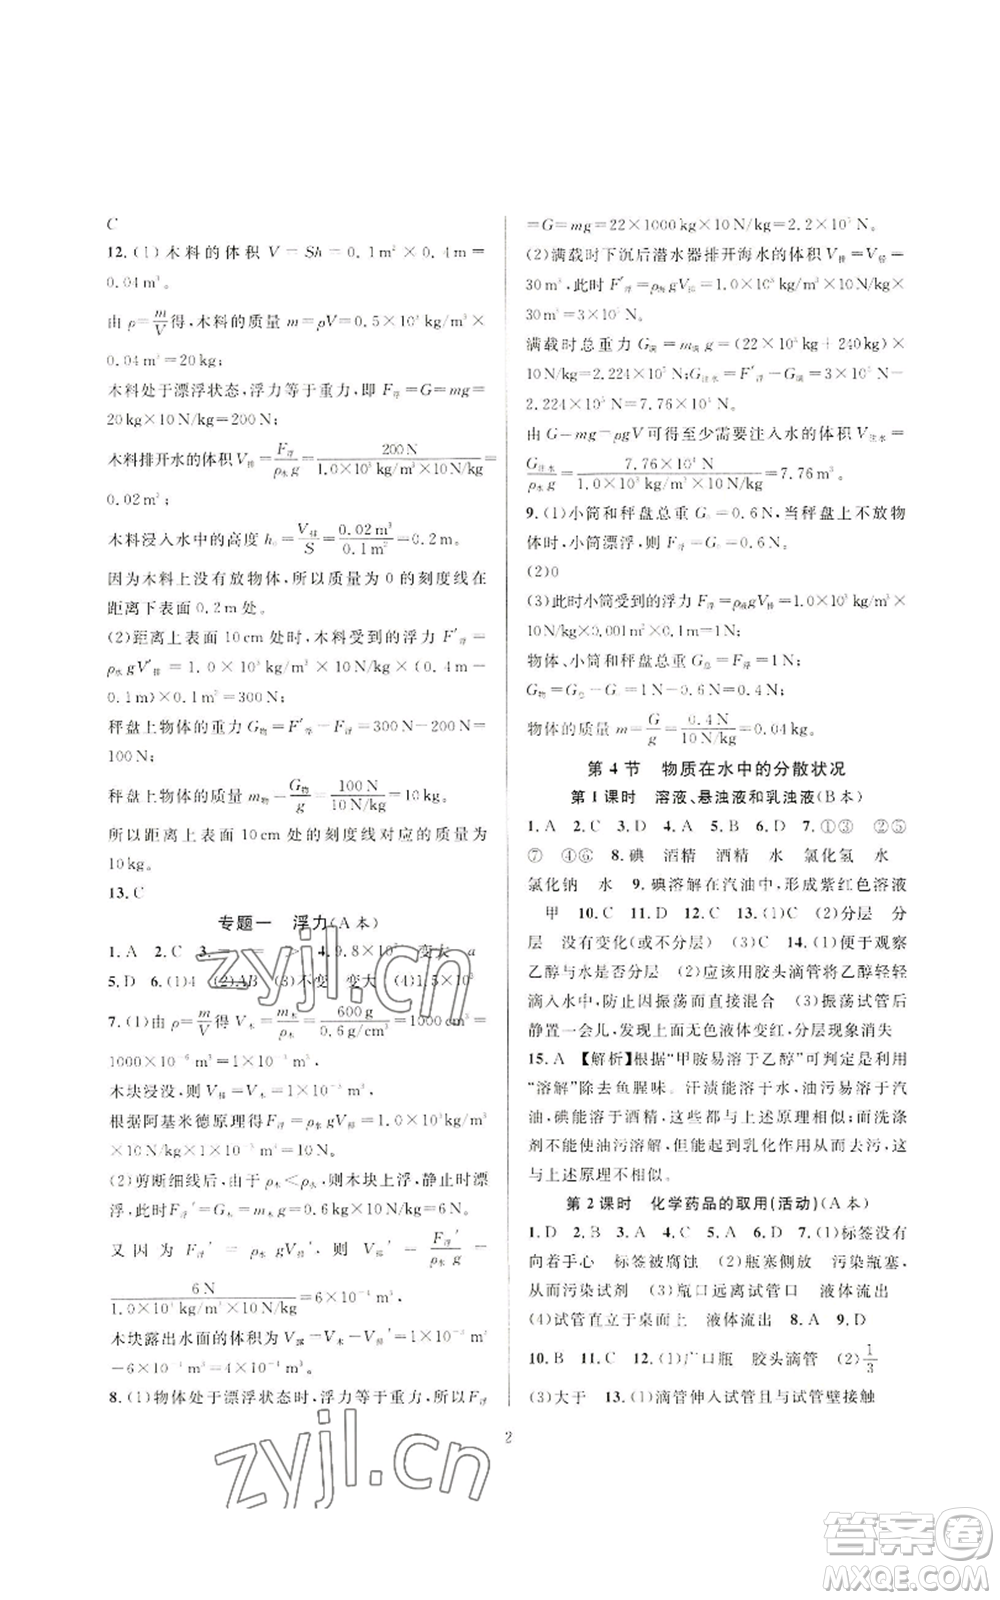 C
12.(1)木料的体积 V=Sh=0.1m²×0.4m=
0.04m³。
由ρ=m/V得,木料的质量 m=ρV=0.5×10³kg/m³×
0.04m³=20kg;
木料处于漂浮状态,浮力等于重力,即 F浮=G=mg=
20kg×10N/kg=200N;
木料排开水的体积V排=F浮/ρ水g=200N/1.0×10³kg/m³×10N/kg=
0.02m³;
木料浸入水中的高度 h=V排/S=0.02m³/0.1m²=0.2m。
因为木料上没有放物体,所以质量为0的刻度线在
距离下表面0.2m处。
(2)距离上表面10cm处时,木料受到的浮力 F′浮=
ρ水gV′排=1.0×10³kg/m³×10N/kg×(0.4m-
0.1m)×0.1m²=300N;
秤盘上物体的重力G物=F′浮-F浮=300N-200N=
100N;
秤盘上物体的质量 m物=G物/g=100N/10N/kg=10kg,
所以距离上表面10cm处的刻度线对应的质量为
10kg。
13.C
专题一 浮力(A本)
1.A 2.C 3.= = > 4.9.8×10³ 变大 a
5.D 6.(1)4 (2)AB (3)不变 变大 (4)1.5×10³
7.(1)由ρ=m/V得V木=m木/ρ木=600g/0.6g/cm³=1000cm³=
1000×10⁻⁶m³=1×10⁻³m³;
木块浸没,则V排=V木=1×10⁻³m³,
根据阿基米德原理得F浮=ρ水gV排=1.0×10³kg/m³
×10N/kg×1×10⁻³m³=10N。
(2)剪断细线后,由于ρ木<ρ水,则木块上浮,静止时漂
浮,此时F浮′=G木=m木g=0.6kg×10N/kg=6N。
又因为 F浮′=ρ水gV排′,则 V排′=F浮′/ρ水g=
6N/1.0×10³kg/m³×10N/kg=6×10⁻⁴m³,
木块露出水面的体积为V露=V木-V排′=1×10⁻³m³
-6×10⁻⁴m³=4×10⁻⁴m³。
8.(1)物体处于漂浮状态时,浮力等于重力,所以F浮
=G=mg=22×1000kg×10N/kg=2.2×10⁵N。
(2)满载时下沉后潜水器排开海水的体积V排=V潜=
30m³,此时F′浮=ρ水gV排=1.0×10³kg/m³×10N/kg×
30m³=3×10⁵N;
满载时总重力G满=m满g=(22×10³kg+240kg)×
10N/kg=2.224×10⁵N;G注水=F′浮-G满=3×10⁵N-
2.224×10⁵N=7.76×10⁴N。
由G=mg=ρgV可得至少需要注入水的体积V注水=
G注水/ρ水g=7.76×10⁴N/1.0×10³kg/m³×10N/kg=7.76m³。
9.(1)小筒和秤盘总重G₀=0.6N,当秤盘上不放物
体时,小筒漂浮,则F浮=G₀=0.6N。
(2)0
(3)此时小筒受到的浮力F浮=ρ液gV排=1.0×10³kg/m³×
10N/kg×0.0001m³=1N;
物体、小筒和秤盘总重G总=F浮=1N;
G物=G总-G₀=1N-0.6N=0.4N,
物体的质量m=G/g=0.4N/10N/kg=0.04kg。
第4节 物质在水中的分散状况
第1课时 溶液、悬浊液和乳浊液(B本)
1.A 2.C 3.D 4.A 5.B 6.D 7.①③ ②⑤
⑦ ④⑥ 8.碘 酒精 酒精 水 氯化氢 水
氯化钠 水 9.碘溶解在汽油中,形成紫红色溶液
甲 10.C 11.D 12.C 13.(1)C (2)分层 分
层 没有变化(或不分层) (3)C 14.(1)便于观察
乙醇与水是否分层 (2)应该用胶头滴管将乙醇轻轻
滴入水中,防止因振荡而直接混合 (3)振荡试管后
静置一会儿,发现上面无色液体变红,分层现象消失
15.A 【解析】根据“甲胺易溶于乙醇”可判定是利用
“溶解”除去鱼腥味。汗渍能溶于水,油污易溶于汽
油,碘能溶于酒精,这些都与上述原理相似;而洗涤
剂不能使油污溶解,但能起到乳化作用从而去污,这
与上述原理不相似。
第2课时 化学药品的取用(活动)(A本)
1.D 2.B 3.C 4.A 5.A 6.D 7.(1)标签没有
向着手心 标签被腐蚀 (2)瓶塞侧放 污染瓶塞,
从而污染试剂 (3)瓶口远离试管口 液体流出
(4)试管直立于桌面上 液体流出 8.A 9.D
10.B 11.C 12.(1)广口瓶 胶头滴管 (2)1/3
(3)大于 13.(1)滴管伸入试管且与试管壁接触
2
zyjl.cn
zyjl.cn
答案卷
MXQE.COM